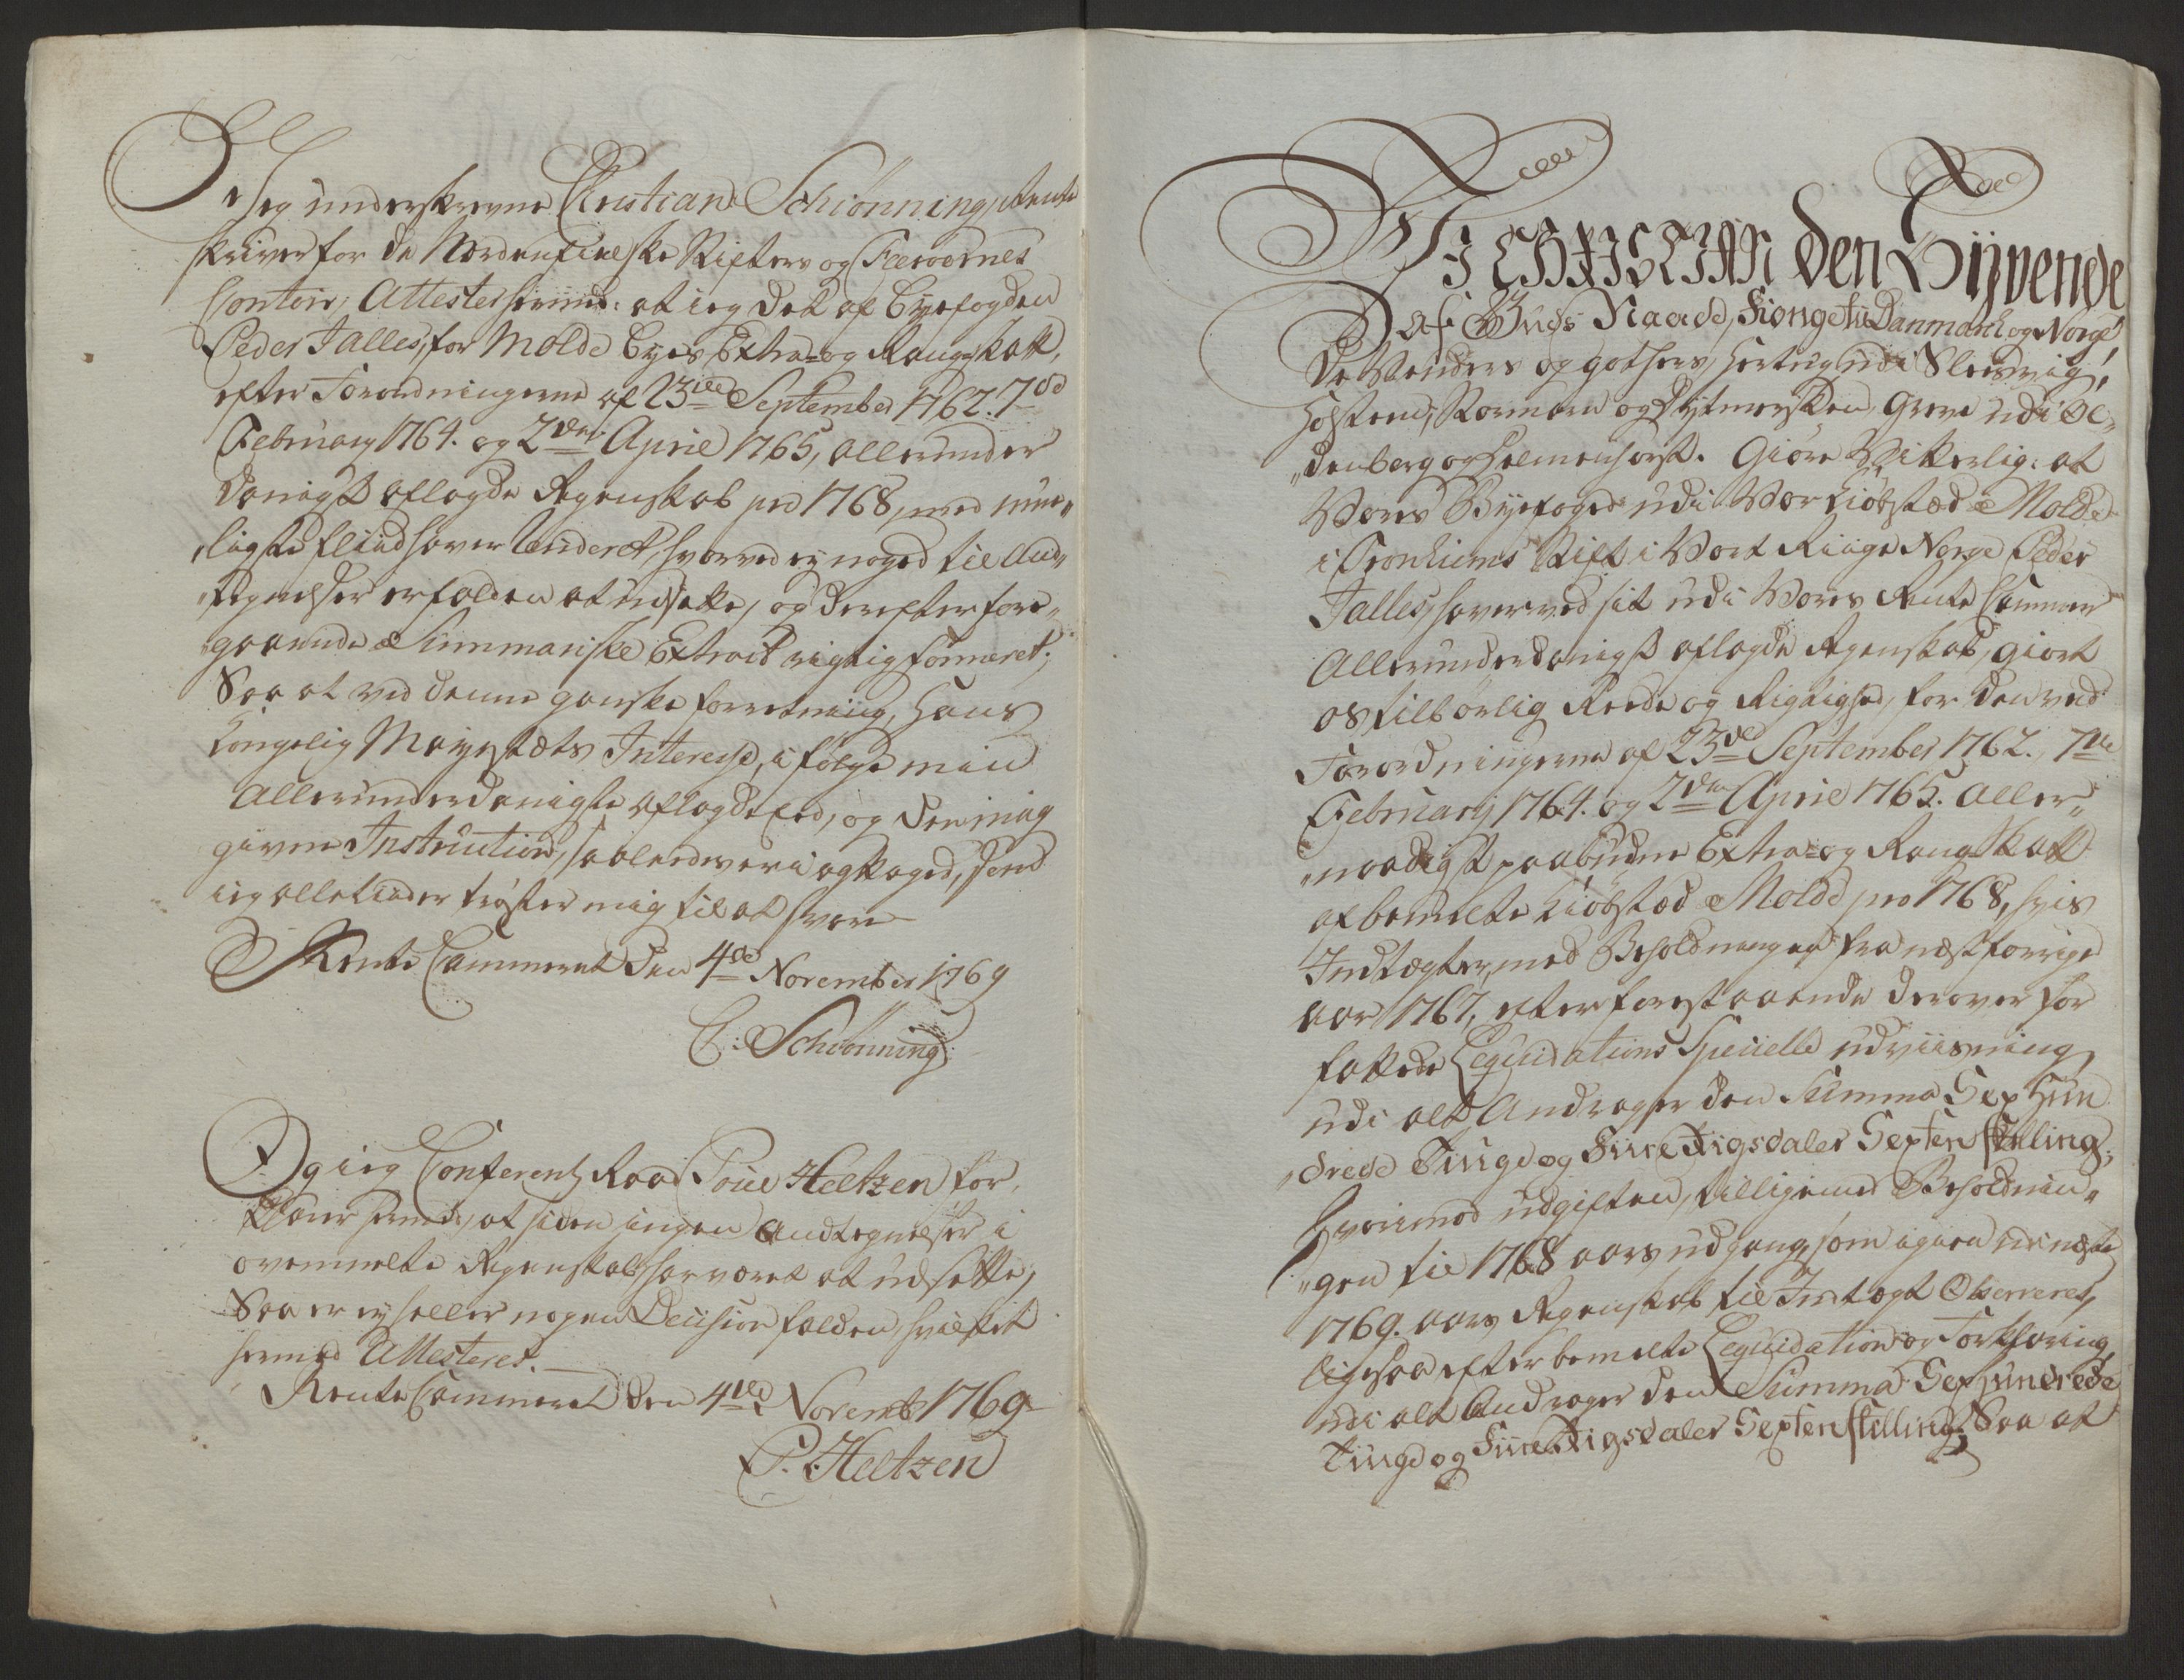 Jeg underskrevne Christian Schiönning, Rente
skriver for de Nordenfieldske Stifters og Færöernes
Contoir, Attesterer herved: at ieg det af Byefogden
Peder Falles, for Molde Byes Extra- og Rang-Skatt,
efter Forordningerne af 23de September 1762. 7de
February 1764. og 2den April 1765, allerunder
danigst aflagde Regenskab pro 1768, med mue„
„ligste fliid haver Revideret, hvorved ey noget til And„
„tegnelser er falden at udsætte, og derefter fore„
„gaaende Summariske Extract rigtig formeret;
Saa at ved denne ganske forretning, Hans
Kongelig Mayestæts Interesse, i fölge min
Allerunderdanigste aflagde Eed, og den mig
givne Instruction, saaledes er i agttaget, som
ieg alletiider tröster mig til at svare
Rente Cammeret den 4de November 1769
C: Schiönning
Og ieg Conferentz Raad Poul Heltzen for„
klarer herved, at siden ingen Andtegnelser i
ovenmelte Regenskab har været at udsætte,
Saa er ey heller nogen Decision falden, hvilket
hermed Attesteres.
Rente Cammeret den 4de Novemb: 1769
P. Heltzen
VI CHRISTIAN den Syvende
Af Guds Naade, Konge til Danmark og Norge,
De Venders og Gothers, Hertug udi Slesvig,
Holsten, Stormarn og Dytmersken, Greve udi Ol„
„denborg og Delmenhorst. Giöre Vitterlig: at
Vores Byefoged udi Vor Kiöbstæd Molde
i Tronhiems Stift i Vort Riige Norge Peder
Falles, haver ved sit udi Vores Rente Cammer
Allerunderdanigst aflagde Regenskab, giort
os tilbörlig Reede og Rigtighed, for den ved
Forordningerne af 23de September 1762. 7de
February 1764. og 2den April 1765. aller„
„naadigst paabudne Extra- og Rang-Skatt
af bemelte Kiöbstæd Molde pro 1768, hvis
Indtægter, med Beholdningen fra næstforrige
aar 1767, efter forestaaende derover for
fattede Liqvidations Specielle udviisning
udi alt Andrager den Summa Sex Hun
„drede Tiuge og Fiire Rigsdaler Sexten skilling;
Hvorimod udgiften, tilligemed Beholdnin„
„gen til 1768 aars udgang, som igien udi næste
1769. aars Regenskab til Indtægt Observeres,
ligesaa efter bemelte Liqvidation og Forklaring,
udi alt Andrager den Summa Sexhundrede
Tiuge og Fiire Rigsdaler Sexten skilling; Saa at